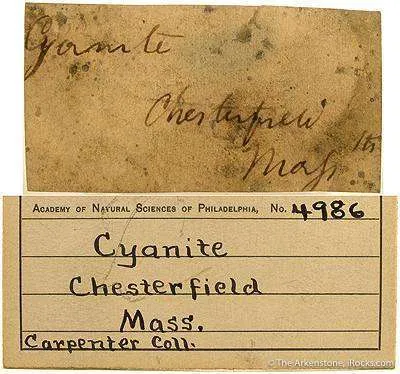 Cyanite
Chesterfield
Mass
ACADEMY OF NATURAL SCIENCES OF PHILADELPHIA, No. 4986
Cyanite
Chesterfield
Mass.
Carpenter Coll.
© The Arkenstone, iRocks.com